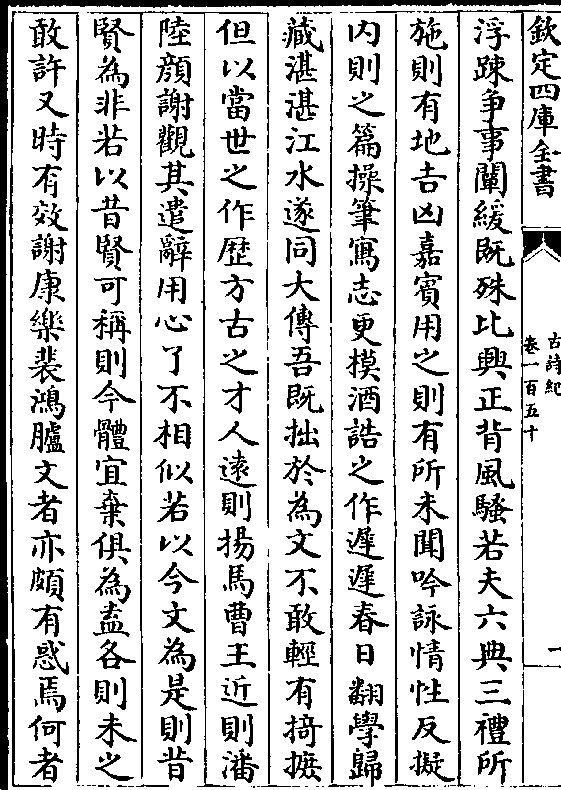 欽定四庫全書
古詩紀
卷一百五十
一
浮踈争事闡緩既殊比興正背風騷若夫六典三禮所
施則有地吉凶嘉賓用之則有所未聞吟詠情性反擬
内則之篇操筆寫志更摸酒誥之作遲遲春日翻學歸
藏湛湛江水遂同大傳吾既拙於為文不敢輕有掎摭
但以當世之作歴方古之才人遠則揚馬曹王近則潘
陸顔謝觀其遣辭用心了不相似若以今文為是則昔
賢為非若以昔賢可稱則今體宜棄俱為盍各則未之
敢許又時有效謝康樂裴鴻臚文者亦頗有惑焉何者